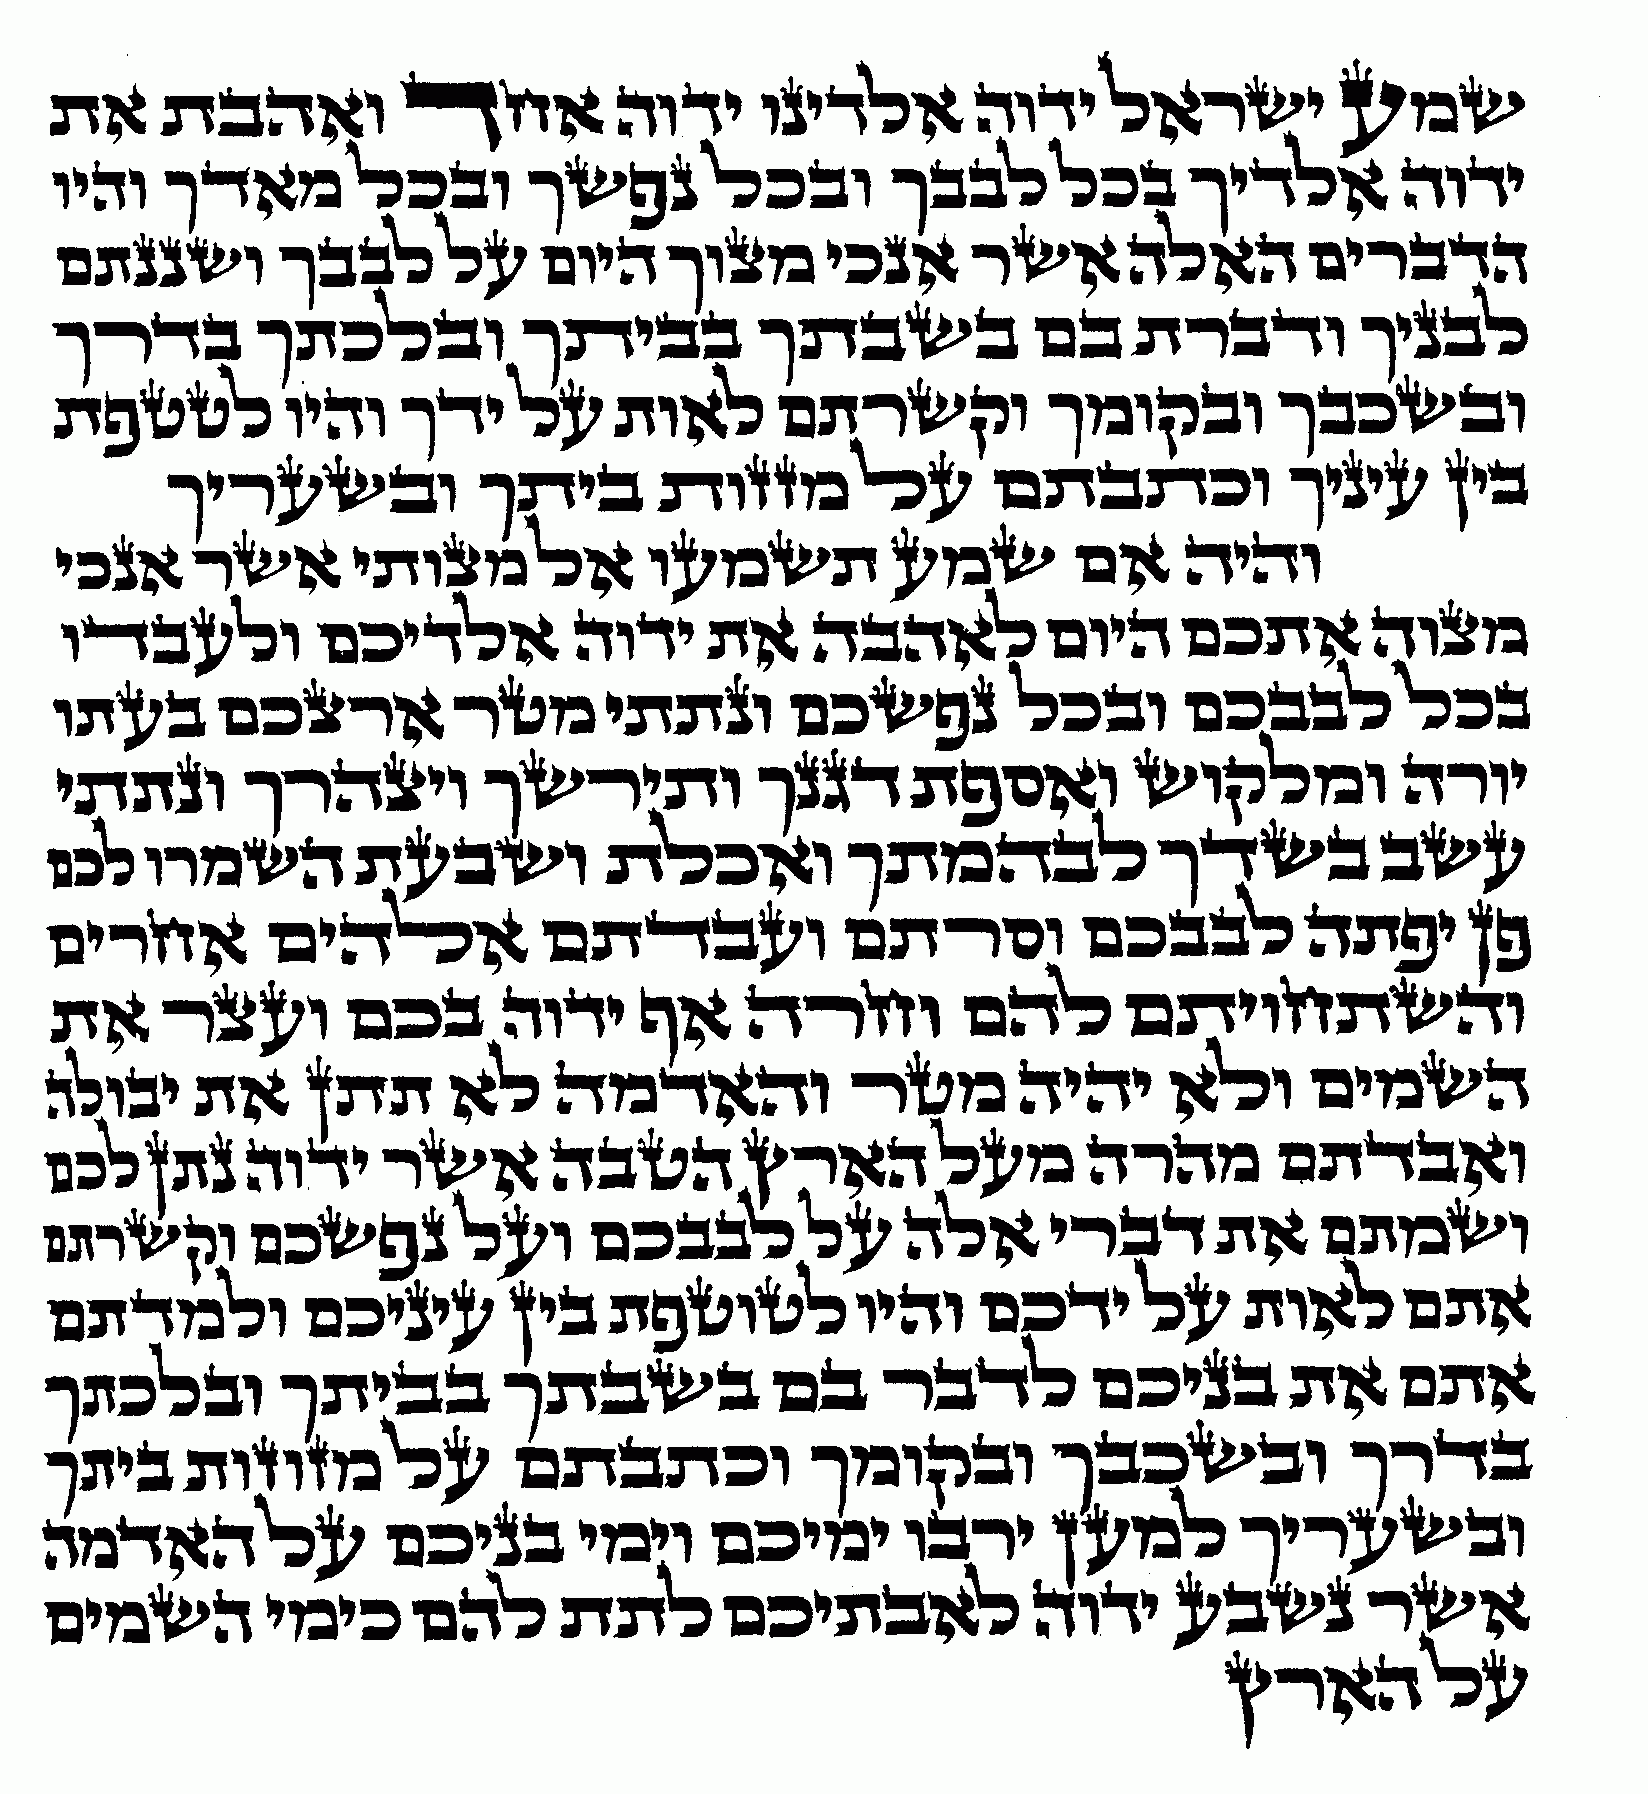 שמע ישראל ידוה אלדינו ידוה אחד ואהבת את
ידוה אלדיך בכל לבבך ובכל נפשך ובכל מאדך והיו
הדברים האלה אשר אנכי מצוך היום על לבבך ושננתם
לבניך ודברת בם בשבתך בביתך ובלכתך בדרך
ובשכבך ובקומך וקשרתם לאות על ידך והיו לטטפת
בין עיניך וכתבתם על מזזות ביתך ובשעריך
והיה אם שמע תשמעו אל מצותי אשר אנכי
מצוה אתכם היום לאהבה את ידוה אלדיכם ולעבדו
בכל לבבכם ובכל נפשכם ונתתי מטר ארצכם בעתו
יורה ומלקוש ואספת דגנך ותירשך ויצהרך ונתתי
עשב בשדך לבהמתך ואכלת ושבעת השמרו לכם
פן יפתה לבבכם וסרתם ועבדתם אלהים אחרים
והשתחויתם להם וחרה אף ידוה בכם ועצר את
השמים ולא יהיה מטר והאדמה לא תתן את יבולה
ואבדתם מהרה מעל הארץ הטבה אשר ידוה נתן לכם
ושמתם את דברי אלה על לבבכם ועל נפשכם וקשרתם
אתם לאות על ידכם והיו לטוטפת בין עיניכם ולמדתם
אתם את בניכם לדבר בם בשבתך בביתך ובלכתך
בדרך ובשכבך ובקומך וכתבתם על מזוזות ביתך
ובשעריך למען ירבו ימיכם וימי בניכם על האדמה
אשר נשבע ידוה לאבתיכם לתת להם כימי השמים
על הארץ